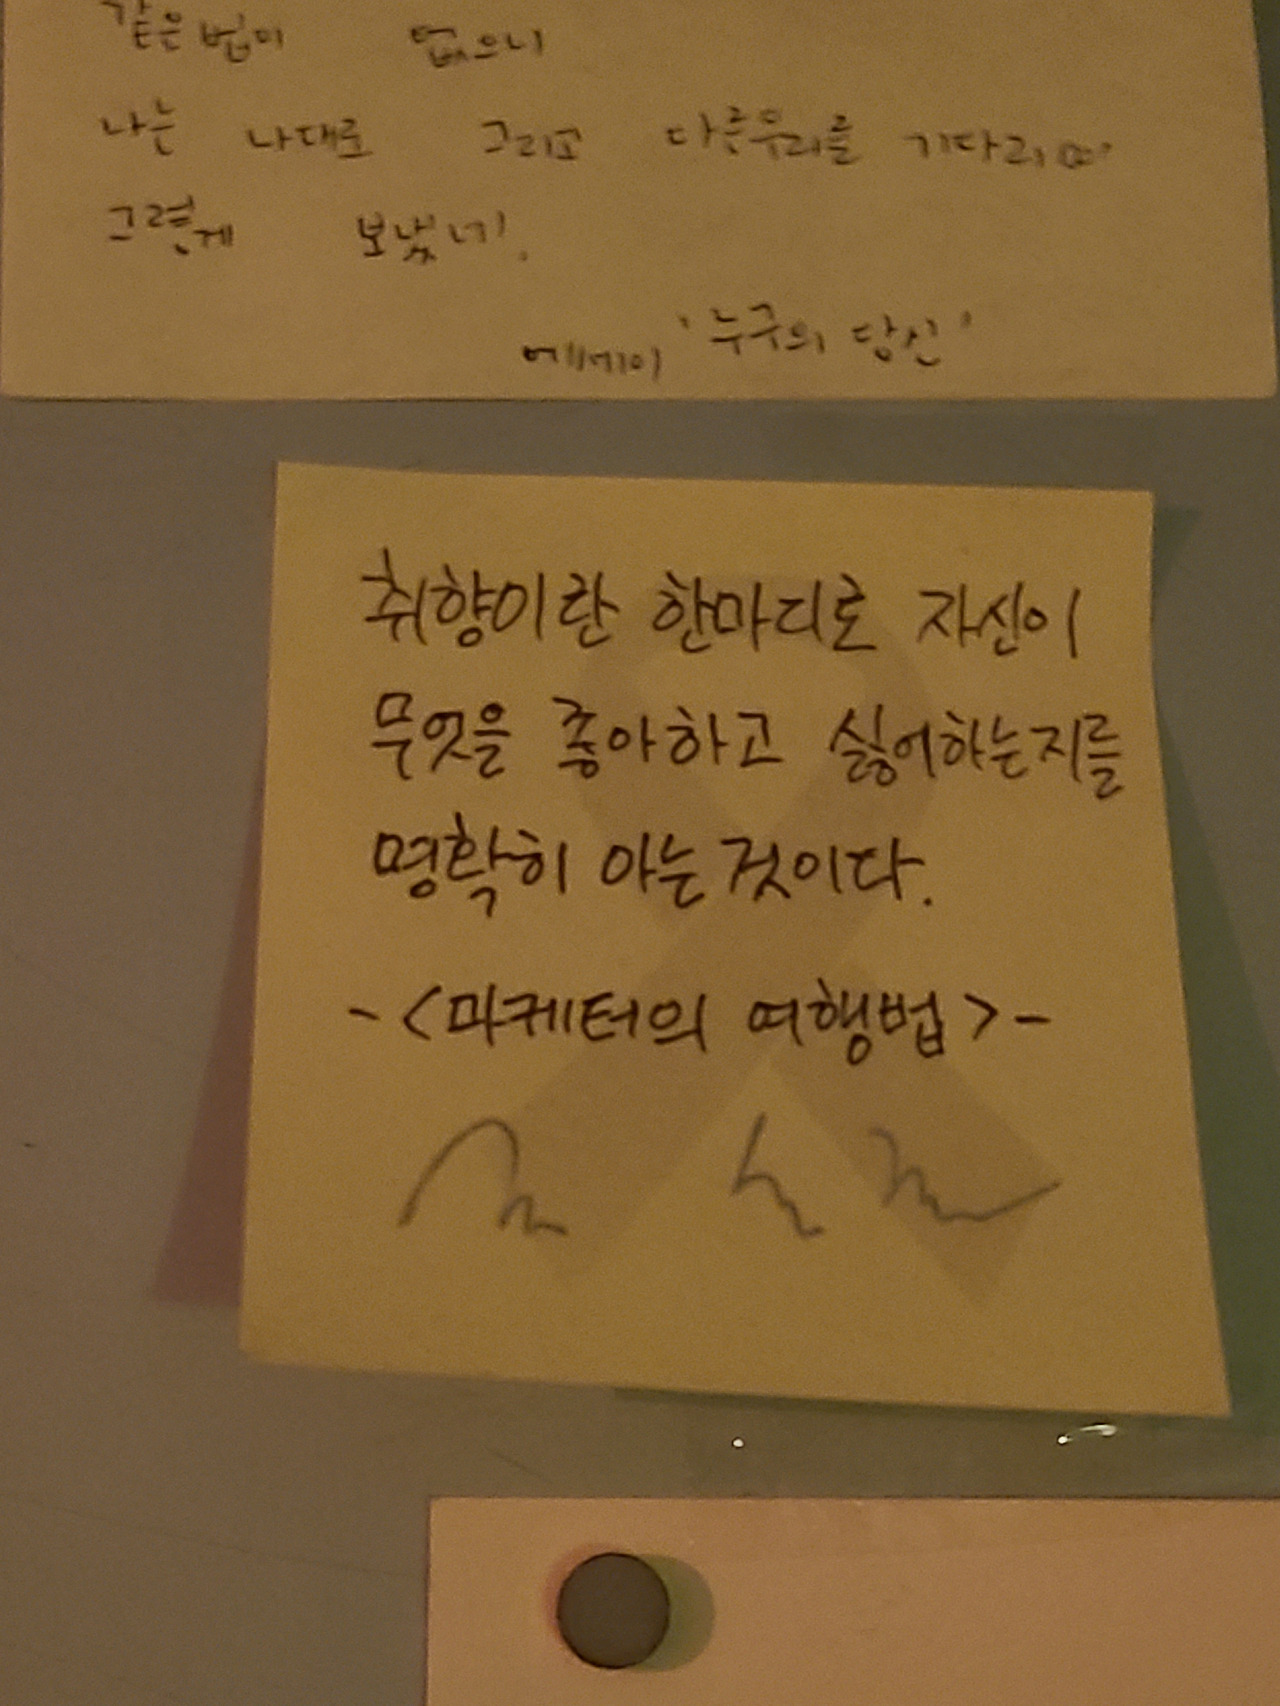 같은 법이 없으니
나는 나대로 그리고 다른 우리를 기다리며
그렇게 보냈네.
에세이 '누구의 당신'
취향이란 한마디로 자신이
무엇을 좋아하고 싫어하는지를
명확히 아는 것이다.
-<마케터의 여행법>-